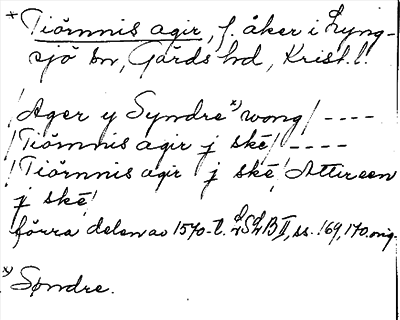 * Tiörnnis agir, f. åker i Lyng-
sjö sn, Gärds hd, Krist. l.
/Ager y Syndre x) wong/ ----
/Tiörnnis agir j skê/ ----
/Tiörnnis agir j skê, Atter een
j skê/
förra delen av 1570-t. LSLB II, ss. 169, 170. orig.
x) Søndre.